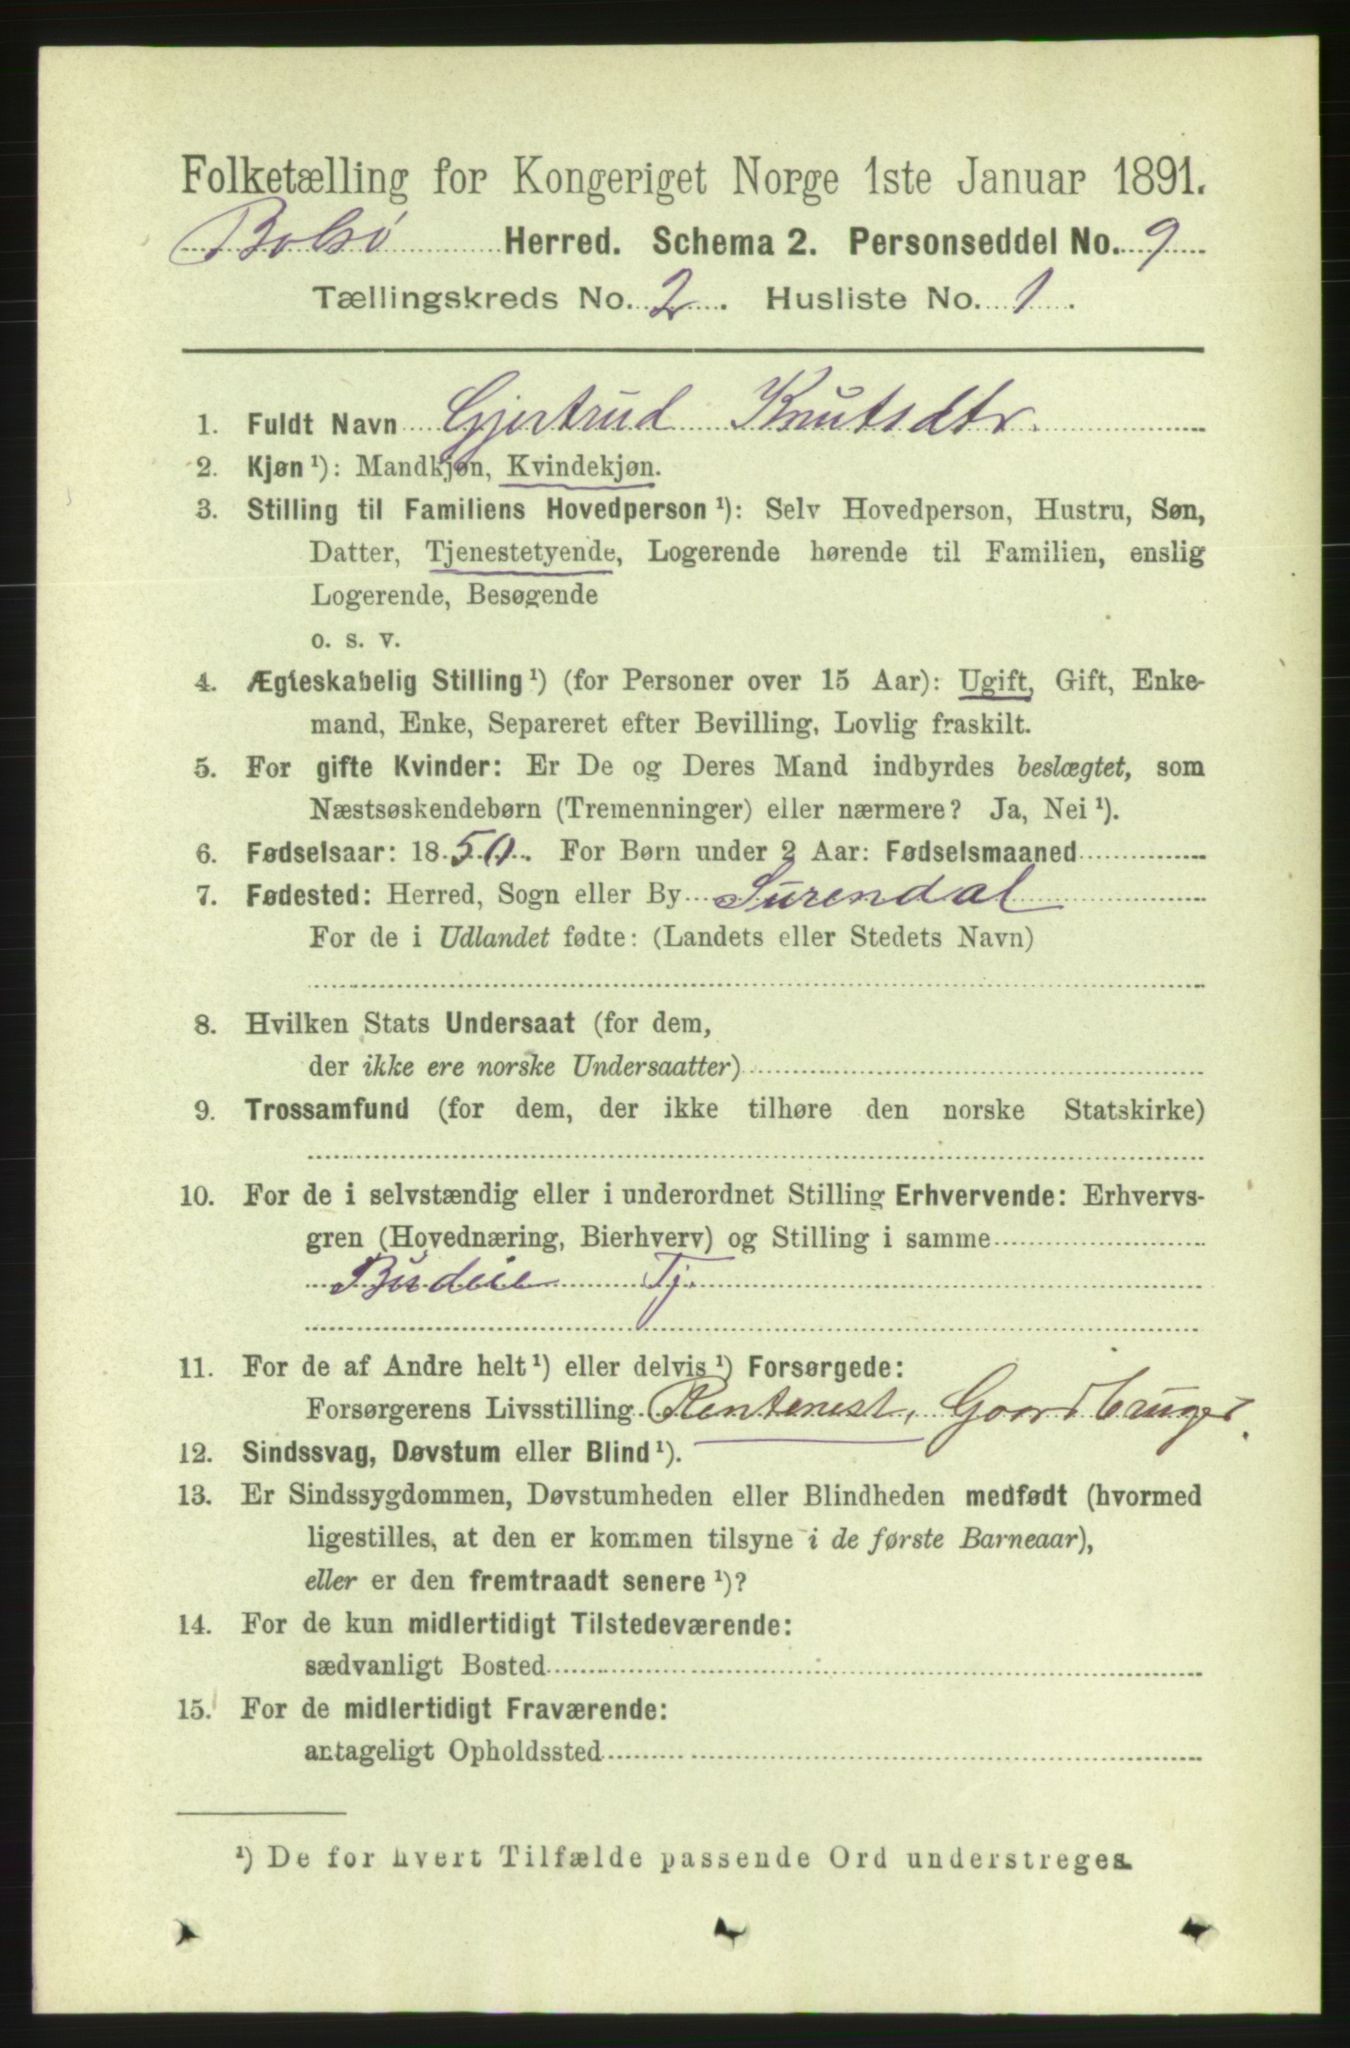 Folketælling for Kongeriget Norge 1ste Januar 1891.
Bolsø Herred. Schema 2. Personseddel No. 9
Tællingskreds No. 2. Husliste No. 1.
1. Fuldt Navn Gjertrud Knutsdtr.
2. Kjøn ¹): Mandkjøn, Kvindekjøn.
3. Stilling til Familiens Hovedperson ¹): Selv Hovedperson, Hustru, Søn,
Datter, Tjenestetyende, Logerende hørende til Familien, enslig
Logerende, Besøgende
o. s. v.
4. Ægteskabelig Stilling ¹) (for Personer over 15 Aar): Ugift, Gift, Enke-
mand, Enke, Separeret efter Bevilling, Lovlig fraskilt.
5. For gifte Kvinder: Er De og Deres Mand indbyrdes beslægtet, som
Næstsøskendebørn (Tremenninger) eller nærmere? Ja, Nei ¹).
6. Fødselsaar: 1850. For Børn under 2 Aar: Fødselsmaaned
7. Fødested: Herred, Sogn eller By Surendal
For de i Udlandet fødte: (Landets eller Stedets Navn)
8. Hvilken Stats Undersaat (for dem,
der ikke ere norske Undersaatter)
9. Trossamfund (for dem, der ikke tilhøre den norske Statskirke)
10. For de i selvstændig eller i underordnet Stilling Erhvervende: Erhvervs-
gren (Hovednæring, Bierhverv) og Stilling i samme
Budeie Tj.
11. For de af Andre helt ¹) eller delvis ¹) Forsørgede:
Forsørgerens Livsstilling Rentenist, Goardbruger.
12. Sindssvag, Døvstum eller Blind ¹).
13. Er Sindssygdommen, Døvstumheden eller Blindheden medfødt (hvormed
ligestilles, at den er kommen tilsyne i de første Barneaar),
eller er den fremtraadt senere ¹)?
14. For de kun midlertidigt Tilstedeværende:
sædvanligt Bosted
15. For de midlertidigt Fraværende:
antageligt Opholdssted
¹) De for hvert Tilfælde passende Ord understreges.